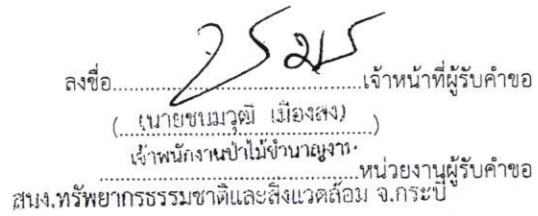 ลงชื่อ..............................................เจ้าหน้าที่ผู้รับคำขอ
(นายชนมวุฒิ เมืองสง)
เจ้าพนักงานป่าไม้ชำนาญงาน
..............................................หน่วยงานผู้รับคำขอ
สนง.ทรัพยากรธรรมชาติและสิ่งแวดล้อม จ.กระบี่